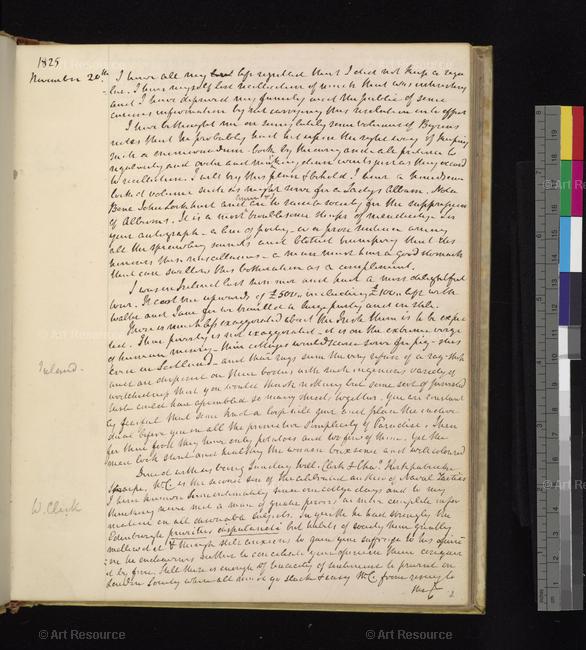 1825
November 20th
I have all my life regretted that I did not keep a regu
lar. I have myself lost recollection of much that was interesting
and I have deprived my family and the public of some
curious information by not carrying this resolution into effect
I have bethought me on seeing lately some volumes of Byrons
notes that he probably had hit upon the right way of keeping
such a memorandum-book by throwing aside all pretence to
regularity and order and marking down events just as they occurd
to recollection. I will try this plan & behold I have a handsome
lockd volume such as might serve for a Ladys Album. Nota
Bene John Lockhart and Anne & I are to raise a society for the suppression
of Albums. It is a most troublesome shape of mendicity. Sir
your autograph - a line of poetry - or a prose sentence among
all the sprawling sonnets and blotted trumpery that dis
honours this miscellany - a man must have a good stomach
that can swallow this botheration as a compliment.
I was in Ireland last summer and had a most delightful
tour. It cost me upwards of £500 including £100 left with
Walter and Jane for we travelled a large party and in stile
There is much less exaggerated about the Irish than is to be expec
ted. Their poverty is not exaggerated - it is on the extreme verge
of human misery - their cottages would scarce serve for pig-styes
even in Scotland - and their rags seem the very refuse of a rag-shop
and are disposed on their bodies with such ingenious variety of
wretchedness that you would think nothing but some sort of perverted
taste could have assembled so many shreds together. You are constant
ly fearful that some knot or loop will give and place the indivi
dual before you in all the primitive simplicity of Paradise. Then
for their food they have only potatoes and too few of them. Yet the
men look stout and healthy the women buxome and well-coloured
Dined with us being Sunday Will. Clerk & Chas Kirkpatricke
Sharpe. W.C. is the second son of the celebrated author of Naval Tactics
I have known him intimately since our college days and to my
thinking never met a man of greater powers or more complete infor
mation on all desirable subjects. In youth he had strongly the
Edinburgh pruritus disputandi but habits of society have greatly
mellowd it & though still anxious to gain your suffrage to his opini
ons he endeavours rather to conciliate your opinion than conquer
it by force. Still there is enough of tenacity of sentiment to prevent in
London Society where all must go slack & easy W.C. from rising to
the
Ireland.
W. Clerk
© Art Resource
© Art Resource
© Art Resource
© Art Resource